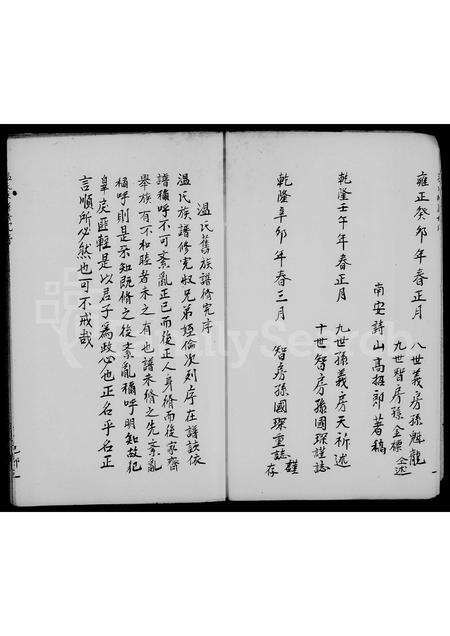 雍正癸卯年春正月
八世義房孫麟龍
九世智房孫金標仝述
南安詩山高招郎著稿
乾隆壬午年春正月
九世孫義房天祈述
十世智房孫國琛謹誌
乾隆辛卯年春三月
智房孫國琛重誌謹存
溫氏舊族譜修完序
溫氏族譜修完叔兄弟姪倫次列序在譜該依
譜稱呼不可紊亂正己而後正人身修而後家齊
舉族有不和睦者未之有也譜未修之先紊亂
稱呼則是未知既修之後紊亂稱呼明知故犯
辜戾匪輕是以君子為政必也正名乎名正
言順所必然也可不戒哉
FamilySearch